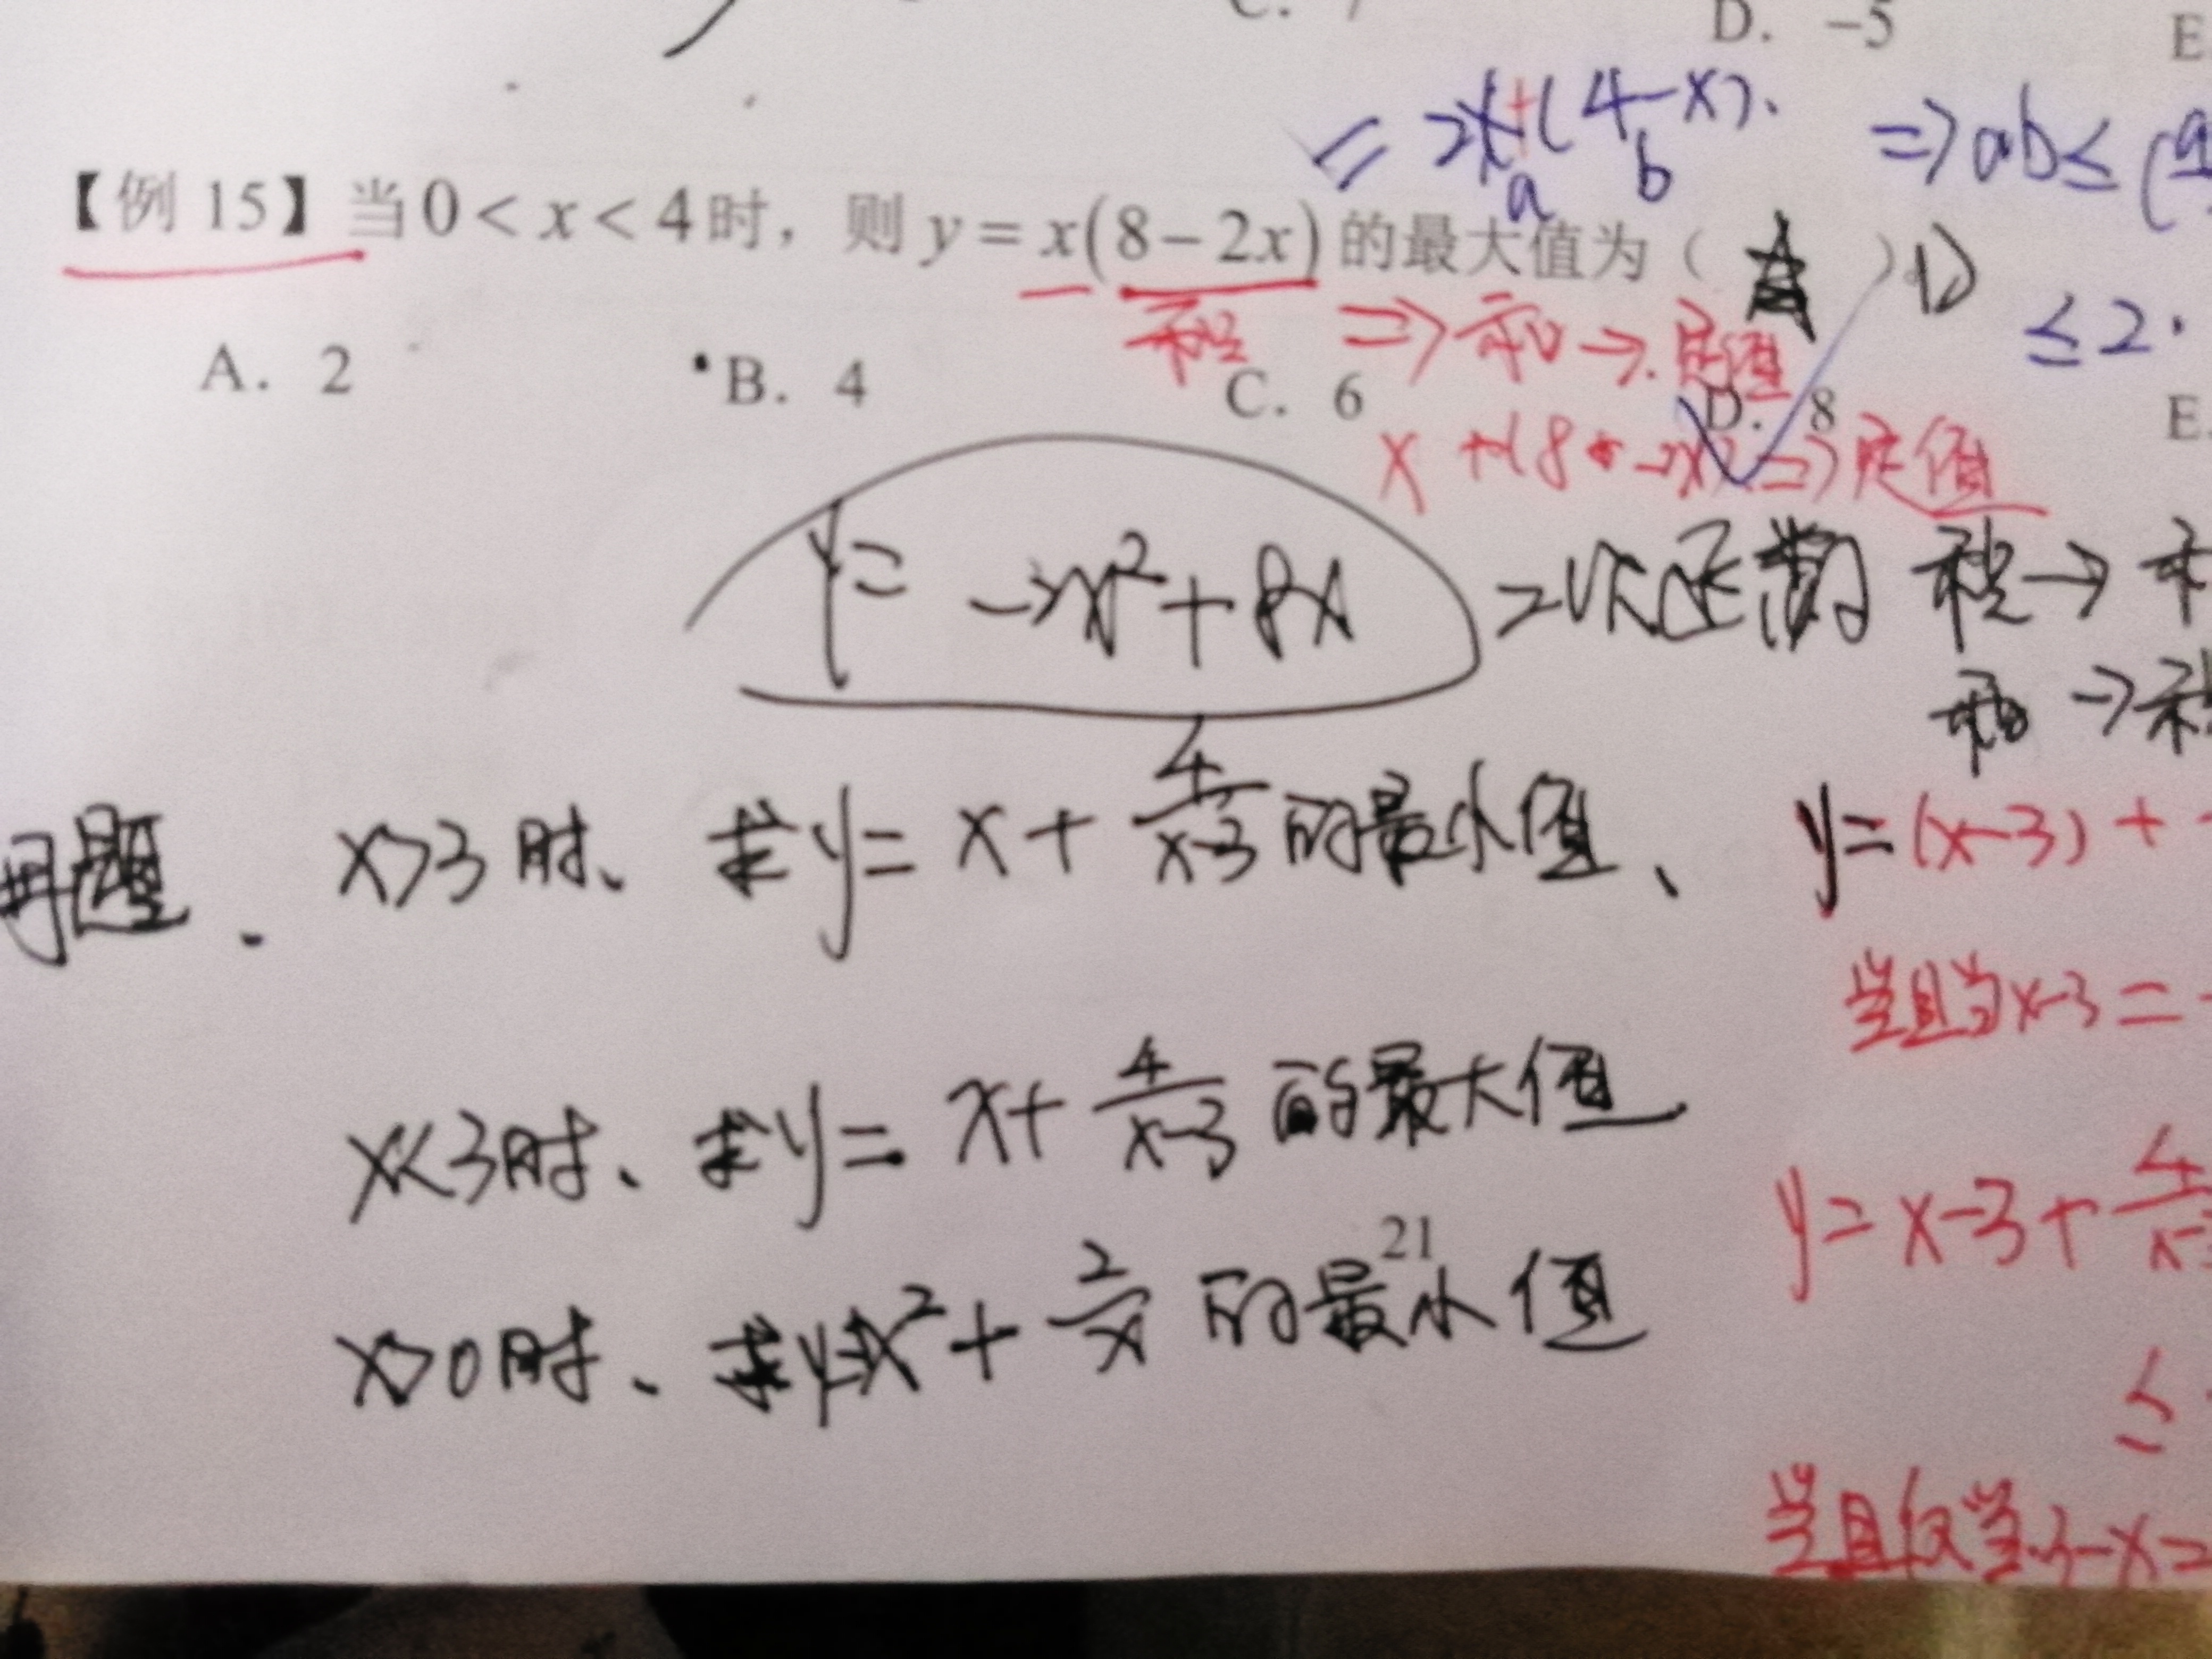 D. -5
E.
= 2x+(4-x).
a b
⇒ab≤(
【例 15】当0<x<4时，则y=x(8-2x)的最大值为（ ）D
积 ⇒ 和→定值
≤2.
A. 2 B. 4 C. 6 D. 8 E.
x+(8-2x)⇒定值
y= -2x²+8x
二次函数 积→
和→积
母题. x>3时、求y=x+4/(x-3)的最小值、 y=(x-3)+
当且当x-3=
x<3时、求y=x+4/(x-3)的最大值
y=x-3+4/(x-3
21
x>0时、求y=x²+2/x的最小值
≤
当且仅当3-x=